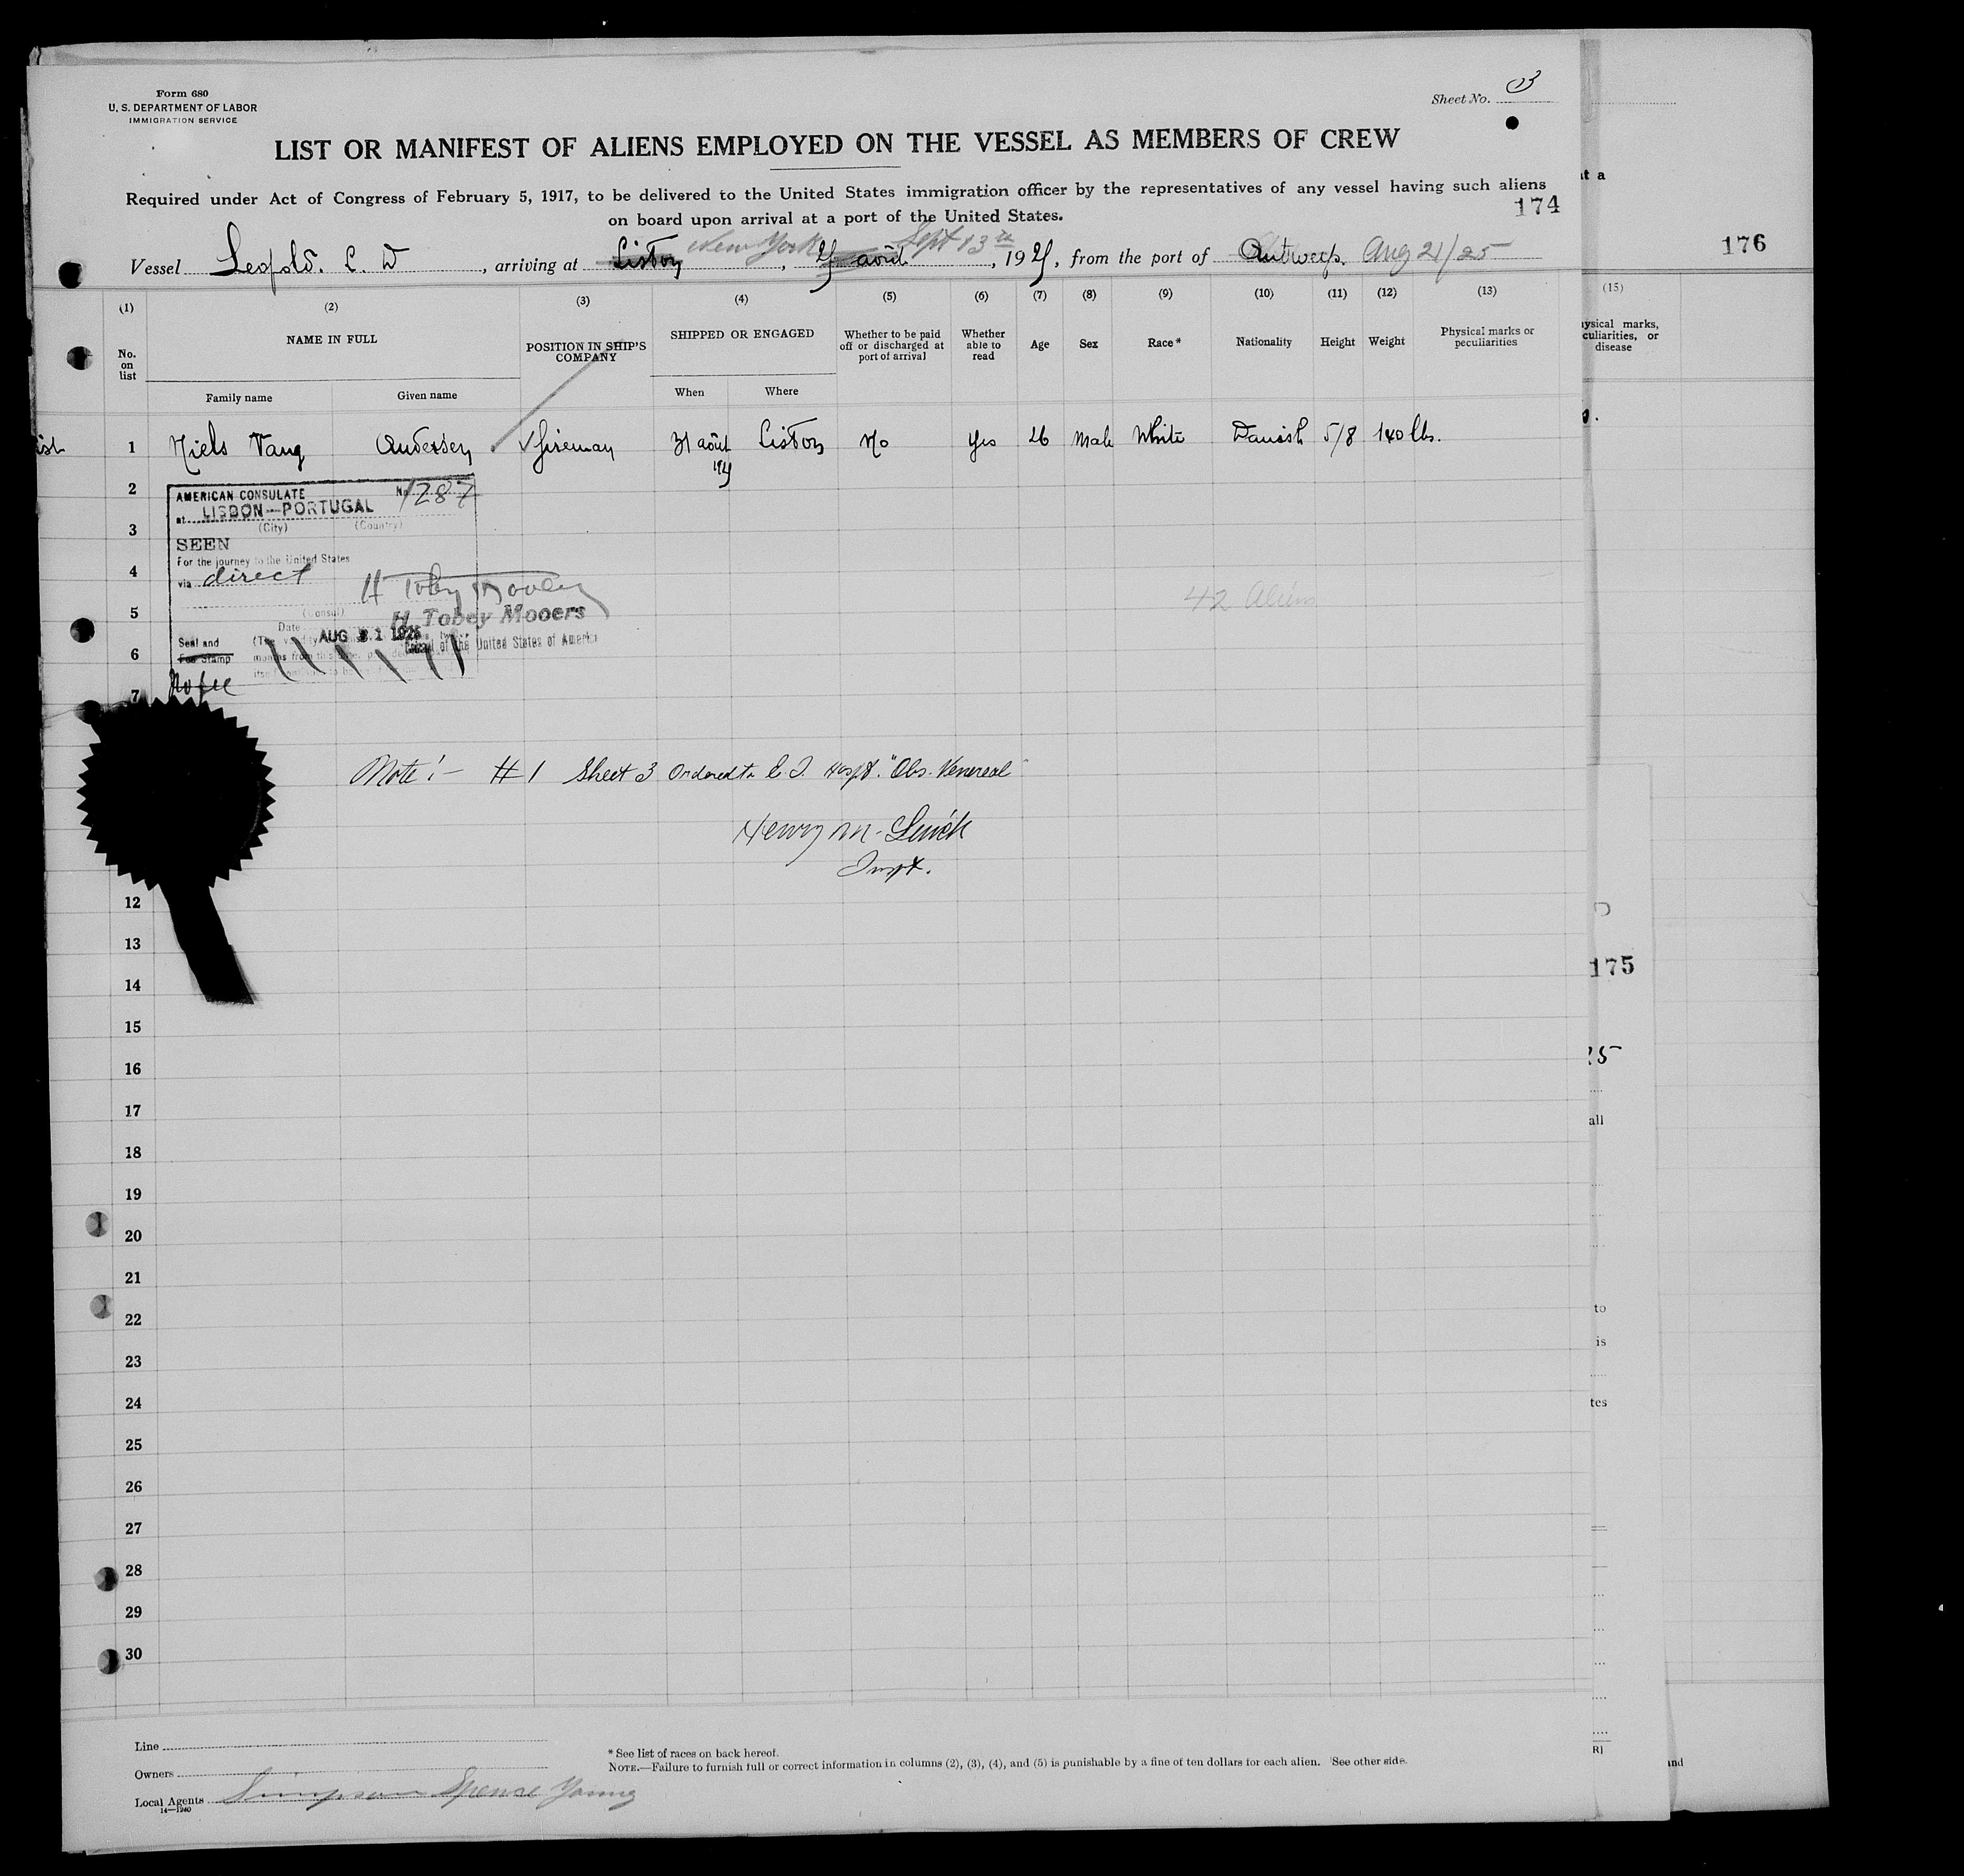 Form 680
U. S. DEPARTMENT OF LABOR
IMMIGRATION SERVICE
Sheet No. 3
LIST OR MANIFEST OF ALIENS EMPLOYED ON THE VESSEL AS MEMBERS OF CREW
Required under Act of Congress of February 5, 1917, to be delivered to the United States immigration officer by the representatives of any vessel having such aliens
on board upon arrival at a port of the United States.
174
New York Sept 13th
Vessel Leopold. L. D, arriving at Lisbon, 25 août, 1925, from the port of Antwerp. Aug 21/25
(1) (2) (3) (4) (5) (6) (7) (8) (9) (10) (11) (12) (13)
No. on list
NAME IN FULL
POSITION IN SHIP'S COMPANY
SHIPPED OR ENGAGED
Whether to be paid off or discharged at port of arrival
Whether able to read
Age
Sex
Race*
Nationality
Height
Weight
Physical marks or peculiarities
Family name
Given name
When
Where
1 Niels Vang Andersen fireman 31 août 1925 Lisbon No Yes 26 Male White Danish 5/8 140 lbs.
2
AMERICAN CONSULATE No 1287
at LISBON—PORTUGAL
(City) (Country)
3
SEEN
For the journey to the United States
4
via direct
H Tobey Mooers
42 Aliens
5
(Consul)
H. Tobey Mooers
Date AUG 31 1925
Consul of the United States of America
Seal and
Fee Stamp
6
No fee
7
Note:- #1 Sheet 3 Ordered to E. I. Hosp't. "Obs. Venereal"
Henry M.
Inspt.
12
13
14
15
16
17
18
19
20
21
22
23
24
25
26
27
28
29
30
Line
Owners
Local Agents Simpson Spence Young
14—1940
* See list of races on back hereof.
NOTE.—Failure to furnish full or correct information in columns (2), (3), (4), and (5) is punishable by a fine of ten dollars for each alien. See other side.
at a
176
(15)
ysical marks,
culiarities, or
disease
175
25
all
to
is
tes
R]
and